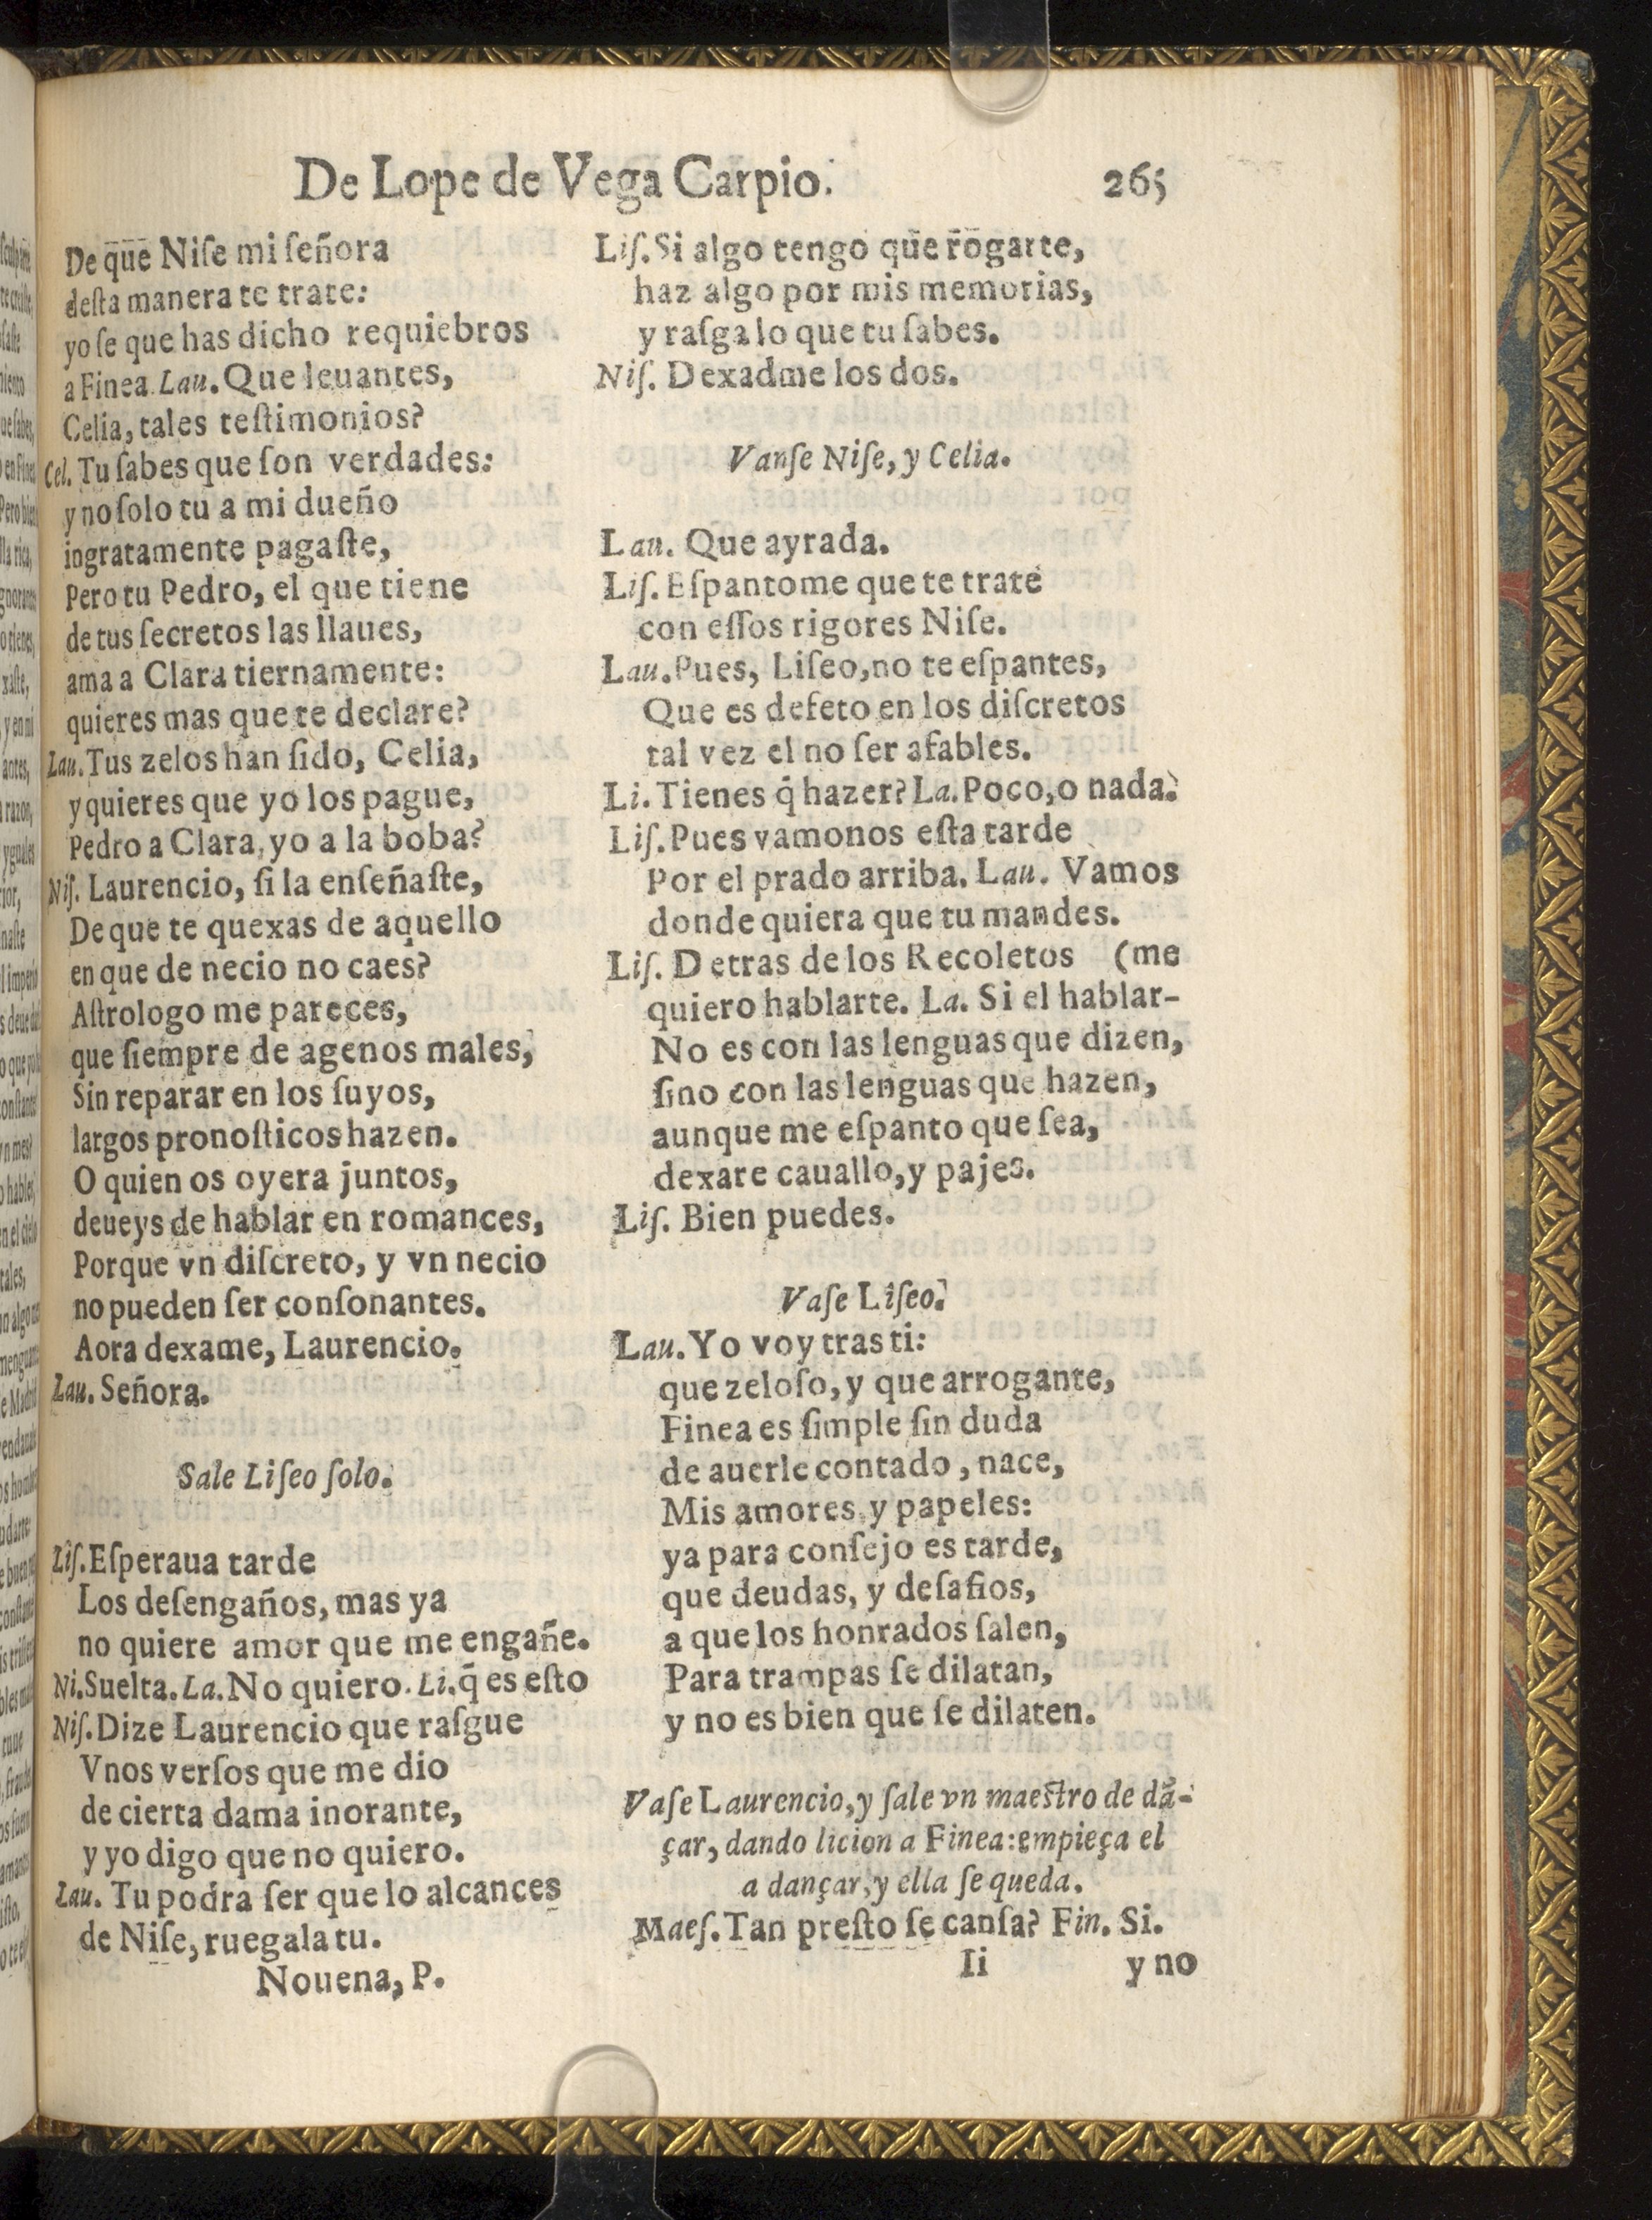 De Lope de Vega Carpio.
265
De que Niſe mi ſeñora
deſta manera te trate:
yo ſe que has dicho requiebros
a Finea. Lau. Que leuantes,
Celia, tales teſtimonios?
Cel. Tu ſabes que ſon verdades:
y no ſolo tu a mi dueño
ingratamente pagaſte,
Pero tu Pedro, el que tiene
de tus ſecretos las llaues,
ama a Clara tiernamente:
quieres mas que te declare?
Lau. Tus zelos han ſido, Celia,
y quieres que yo los pague,
Pedro a Clara, yo a la boba?
Niſ. Laurencio, ſi la enſeñaſte,
De que te quexas de aquello
en que de necio no caes?
Aſtrologo me pareces,
que ſiempre de agenos males,
Sin reparar en los ſuyos,
largos pronoſticos hazen.
O quien os oyera juntos,
deueys de hablar en romances,
Porque vn diſcreto, y vn necio
no pueden ſer conſonantes.
Aora dexame, Laurencio.
Lau. Señora.
Sale Liſeo ſolo.
Liſ. Eſperaua tarde
Los deſengaños, mas ya
no quiere amor que me engañe.
Ni. Suelta. La. No quiero. Li. q̃ es eſto
Niſ. Dize Laurencio que raſgue
Vnos verſos que me dio
de cierta dama inorante,
y yo digo que no quiero.
Lau. Tu podra ſer que lo alcances
de Niſe, ruegala tu.
Nouena, P.
Liſ. Si algo tengo que rogarte,
haz algo por mis memorias,
y raſga lo que tu ſabes.
Niſ. Dexadme los dos.
Vanſe Niſe, y Celia.
Lau. Que ayrada.
Liſ. Eſpantome que te trate
con eſſos rigores Niſe.
Lau. Pues, Liſeo, no te eſpantes,
Que es defeto en los diſcretos
tal vez el no ſer afables.
Li. Tienes q̃ hazer? La. Poco, o nada.
Liſ. Pues vamonos eſta tarde
Por el prado arriba. Lau. Vamos
donde quiera que tu mandes.
Liſ. Detras de los Recoletos (me
quiero hablarte. La. Si el hablar-
No es con las lenguas que dizen,
ſino con las lenguas que hazen,
aunque me eſpanto que ſea,
dexare cauallo, y pajes.
Liſ. Bien puedes.
Vaſe Liſeo.
Lau. Yo voy tras ti:
que zeloſo, y que arrogante,
Finea es ſimple ſin duda
de auerle contado, nace,
Mis amores, y papeles:
ya para conſejo es tarde,
que deudas, y deſafios,
a que los honrados ſalen,
Para trampas ſe dilatan,
y no es bien que ſe dilaten.
Vaſe Laurencio, y ſale vn maeſtro de dã-
çar, dando licion a Finea: empieça el
a dançar, y ella ſe queda.
Maeſ. Tan preſto ſe canſa? Fin. Si.
Ii
y no